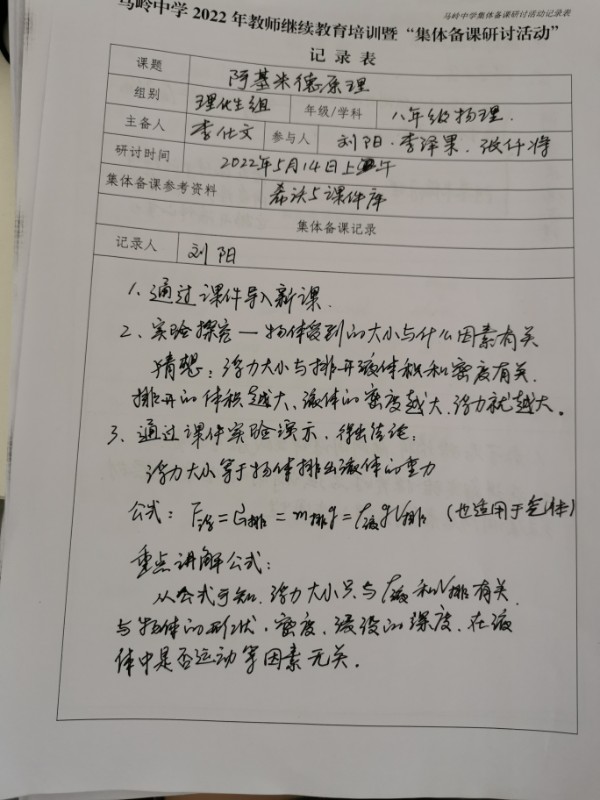 马岭中学集体备课研讨活动记录表
马岭中学2022年教师继续教育培训暨“集体备课研讨活动”
记录表
课题 阿基米德原理
组别 理化生组 年级/学科 八年级物理.
主备人 李仕文 参与人 刘阳.李泽果.张仟将
研讨时间 2022年5月14日上午
集体备课参考资料 希沃5课件库
集体备课记录
记录人 刘阳
1、通过课件导入新课.
2、实验探究一物体受到的大小与什么因素有关
猜想:浮力大小与排开液体积和密度有关.
排开的体积越大、液体的密度越大.浮力就越大。
3、通过课件实验演示,得出结论:
浮力大小等于物体排出液体的重力
公式: F浮=G排=m排g=ρ液gV排 (也适用于气体)
重点讲解公式:
从公式可知.浮力大小只与ρ液和V排有关.
与物体的形状.密度.浸没的深度.在液
体中是否运动等因素无关.